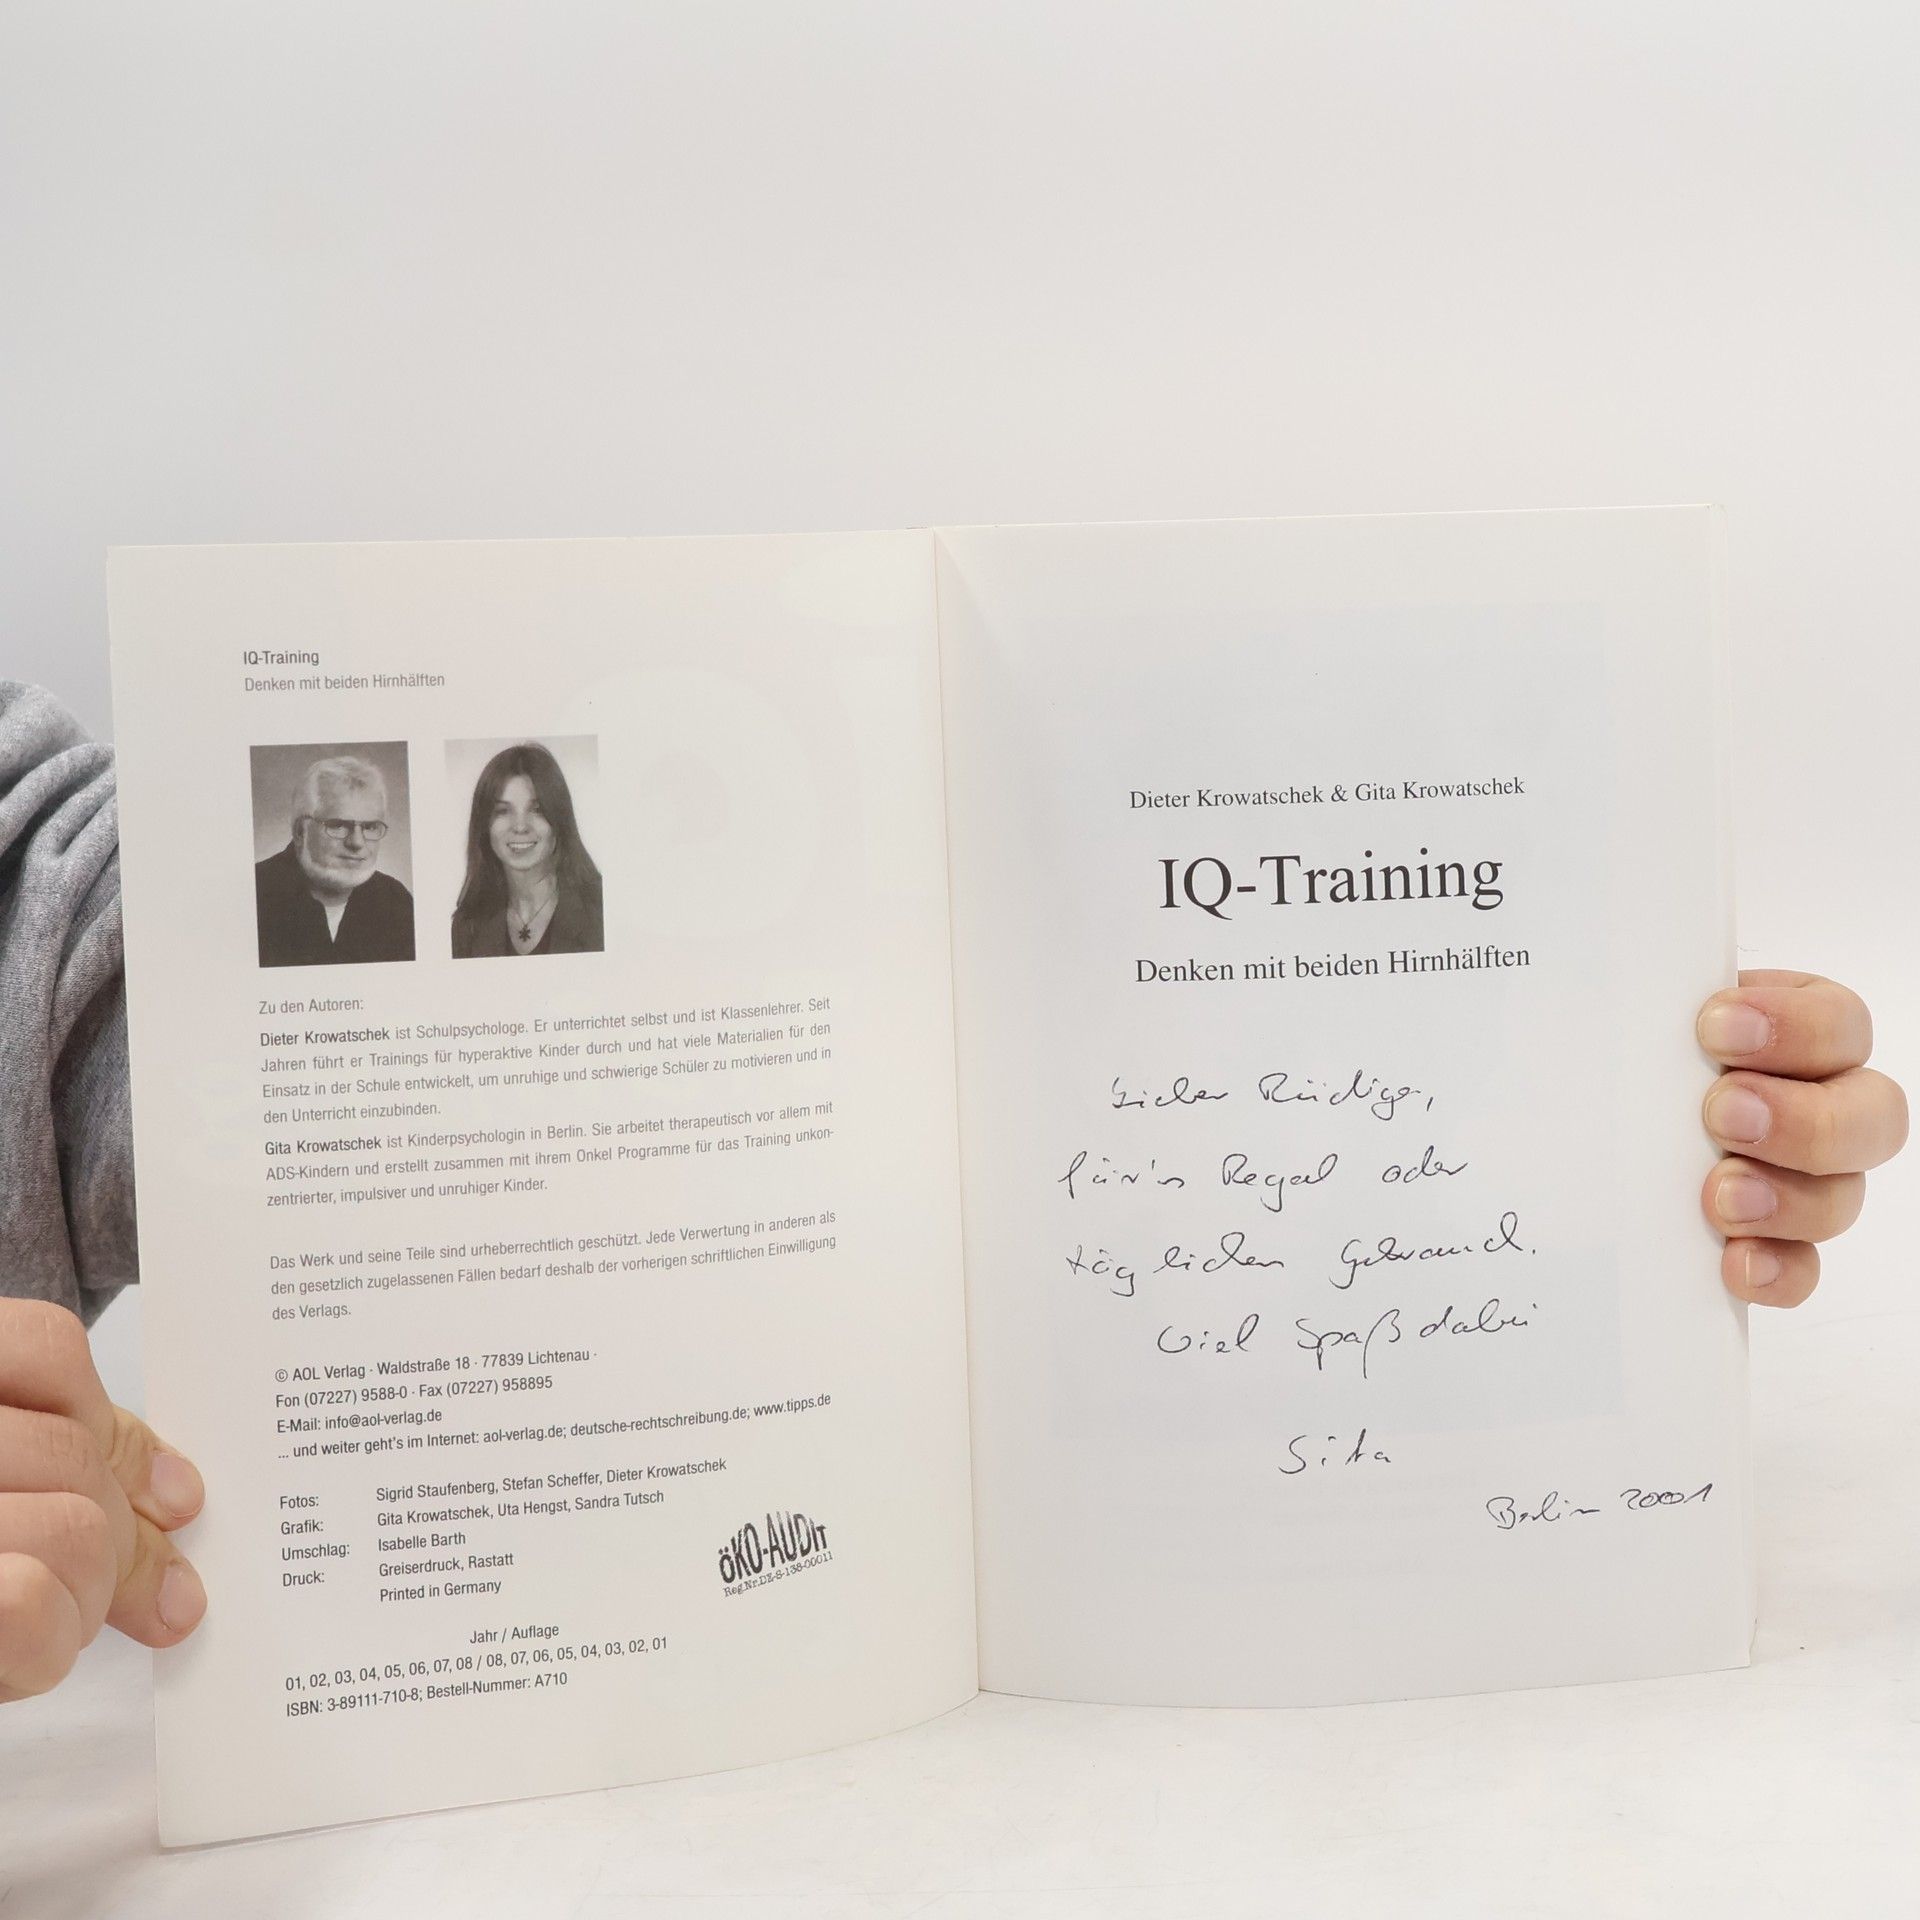 IQ-Training
Denken mit beiden Hirnhälften
Zu den Autoren:
Dieter Krowatschek ist Schulpsychologe. Er unterrichtet selbst und ist Klassenlehrer. Seit
Jahren führt er Trainings für hyperaktive Kinder durch und hat viele Materialien für den
Einsatz in der Schule entwickelt, um unruhige und schwierige Schüler zu motivieren und in
den Unterricht einzubinden.
Gita Krowatschek ist Kinderpsychologin in Berlin. Sie arbeitet therapeutisch vor allem mit
ADS-Kindern und erstellt zusammen mit ihrem Onkel Programme für das Training unkon-
zentrierter, impulsiver und unruhiger Kinder.
Das Werk und seine Teile sind urheberrechtlich geschützt. Jede Verwertung in anderen als
den gesetzlich zugelassenen Fällen bedarf deshalb der vorherigen schriftlichen Einwilligung
des Verlags.
© AOL Verlag · Waldstraße 18 · 77839 Lichtenau ·
Fon (07227) 9588-0 · Fax (07227) 958895
E-Mail: info@aol-verlag.de
... und weiter geht's im Internet: aol-verlag.de; deutsche-rechtschreibung.de; www.tipps.de
Fotos: Sigrid Staufenberg, Stefan Scheffer, Dieter Krowatschek
Grafik: Gita Krowatschek, Uta Hengst, Sandra Tutsch
Umschlag: Isabelle Barth
Druck: Greiserdruck, Rastatt
Printed in Germany
ÖKO-AUDIT
Reg.Nr.DE-S-138-00011
Jahr / Auflage
01, 02, 03, 04, 05, 06, 07, 08 / 08, 07, 06, 05, 04, 03, 02, 01
ISBN: 3-89111-710-8; Bestell-Nummer: A710
Dieter Krowatschek & Gita Krowatschek
IQ-Training
Denken mit beiden Hirnhälften
Lieber Rüdiger,
für's Regal oder
täglichen Gebrauch.
Viel Spaß dabei
Gita
Berlin 2001